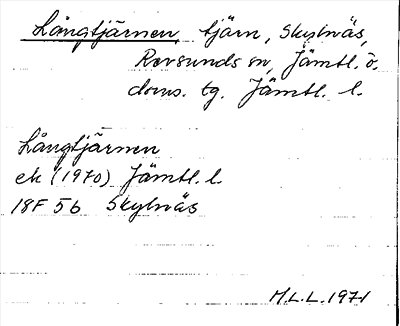 Långtjärnen, tjärn, Skylnäs,
Revsunds sn, Jämtl. ö.
doms. tg. Jämtl. l.
Långtjärnen
ek (1970) Jämtl. l.
18F 5b Skylnäs
M.L.L. 1971